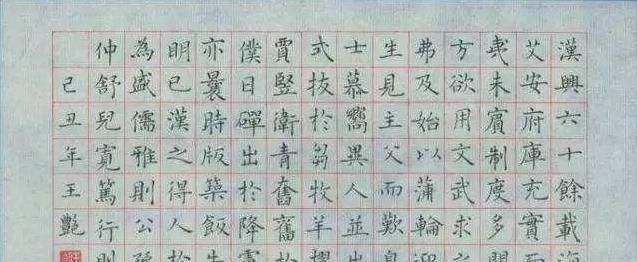 漢興六十餘載海
艾安府庫充實而
夷未賓制度多闕
方欲用文武求之
弗及始以蒲輪迎
生見主父而歎息
士慕嚮異人並出
式拔於芻牧羊擢
賈豎衛青奮舊於
僕日磾出於降虜
亦曩時版築飯牛
明已漢之得人於
為盛儒雅則公孫
仲舒兒寬篤行則
己丑年王艷